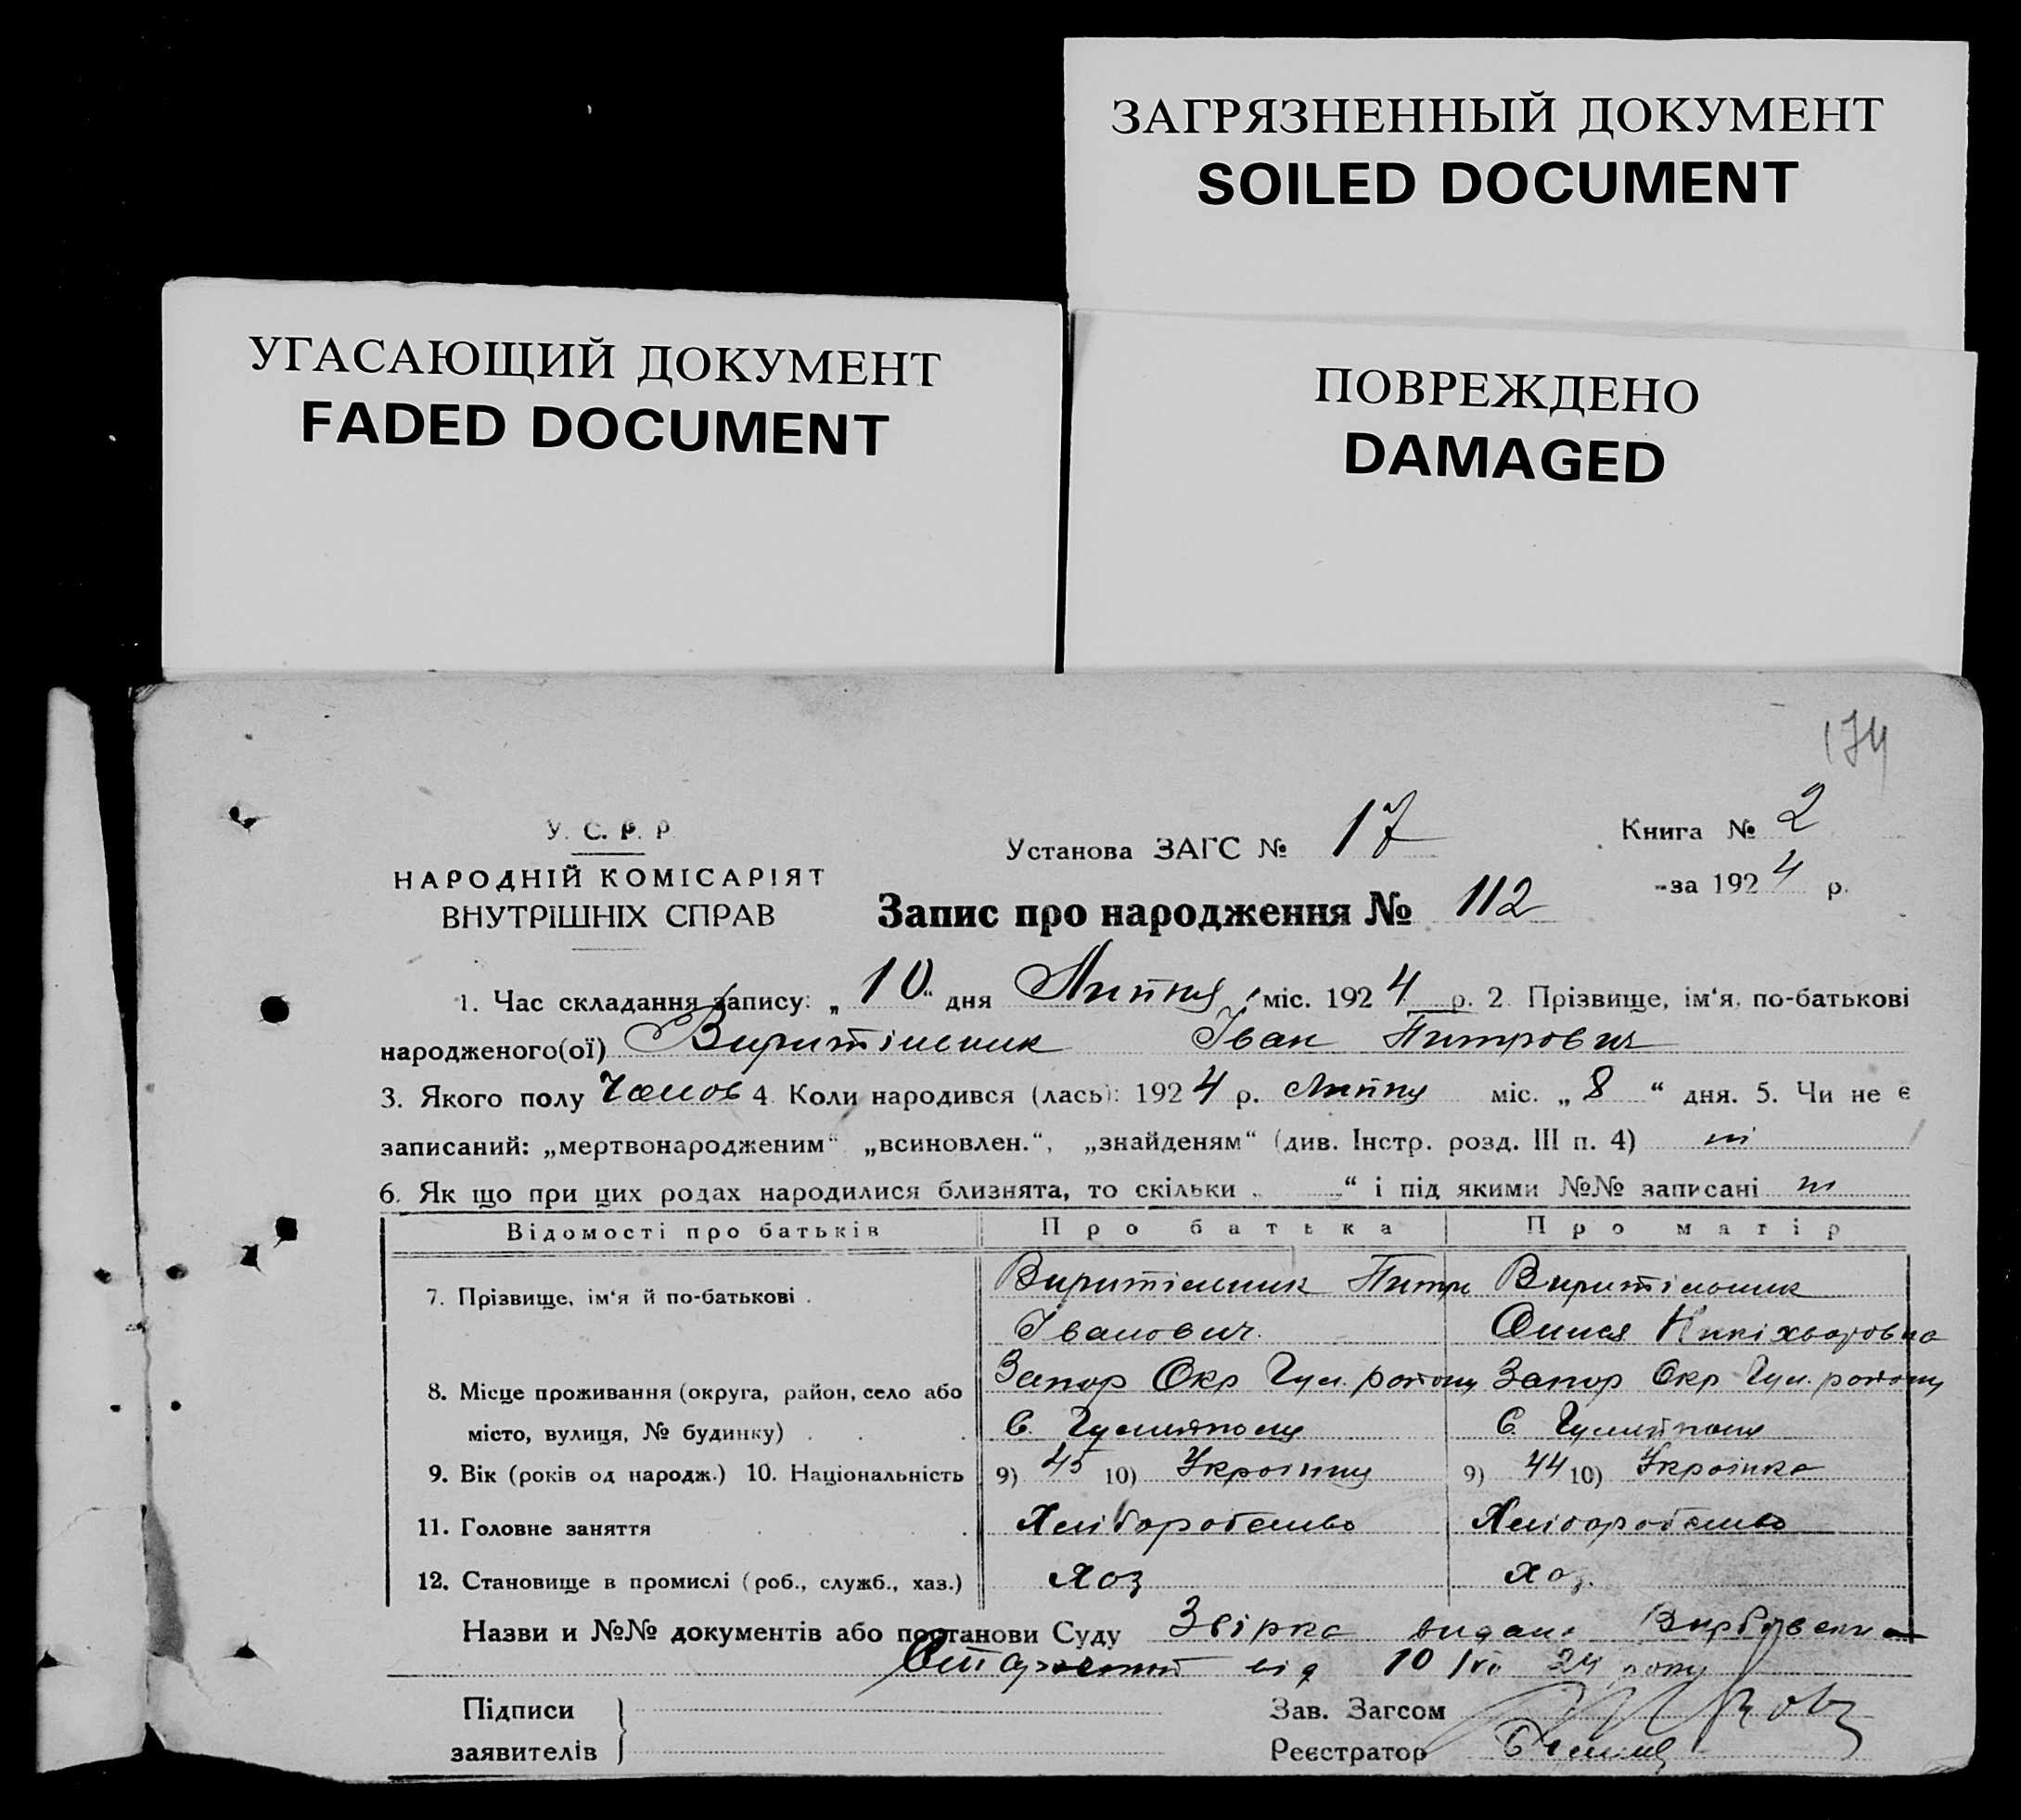 ЗАГРЯЗНЕННЫЙ ДОКУМЕНТ
SOILED DOCUMENT
УГАСАЮЩИЙ ДОКУМЕНТ
FADED DOCUMENT
ПОВРЕЖДЕНО
DAMAGED
174
У. С. Р. Р.
НАРОДНІЙ КОМІСАРІЯТ
ВНУТРІШНІХ СПРАВ
Установа ЗАГС № 17
Книга № 2
за 1924 р.
Запис про народження № 112
1. Час складання запису: „10“ дня Липня міс. 1924 р. 2. Прізвище, ім‘я, по-батькові
народженого(ої) Виритільник Іван Питрович
3. Якого полу Чолов 4. Коли народився (лась): 1924 р. Липня міс. „8“ дня. 5. Чи не є
записаний: „мертвонародженим“ „всиновлен.“, „знайденям“ (див. Інстр. розд. III п. 4) ні
6. Як що при цих родах народилися близнята, то скільки „ “ і під якими №№ записані ні
Відомості про батьків Про батька Про матір
7. Прізвище, ім‘я й по-батькові . Виритільник Питро Виритільник
Іванович
8. Місце проживання (округа, район, село або Запор Окр Гул. району Запор Окр Гул. району
місто, вулиця, № будинку) . . . С. Гуляйполя С. Гуляйполя
9. Вік (років од народж.) 10. Національність 9) 45 10) Українец 9) 44 10) Українка
11. Головне заняття . . . Хліборобство Хліборобство
12. Становище в промислі (роб., служб., хаз.) Хоз Хоз.
Назви и №№ документів або постанови Суду видана
від 10/VII 24 року
Підписи
заявителів
Зав. Загсом
Реєстратор